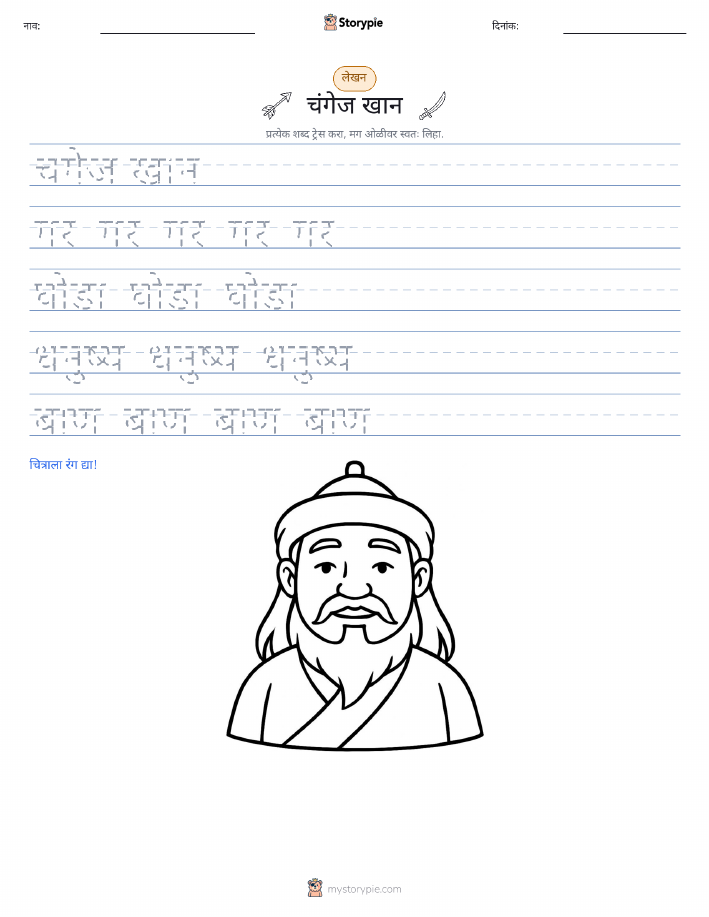 नाव:
Storypie
दिनांक:
लेखन
चंगेज खान
प्रत्येक शब्द ट्रेस करा, मग ओळीवर स्वतः लिहा.
चंगेज खान
गर गर गर गर गर
घोडा घोडा घोडा
धनुष्य धनुष्य धनुष्य
बाण बाण बाण बाण
चित्राला रंग द्या!
mystorypie.com